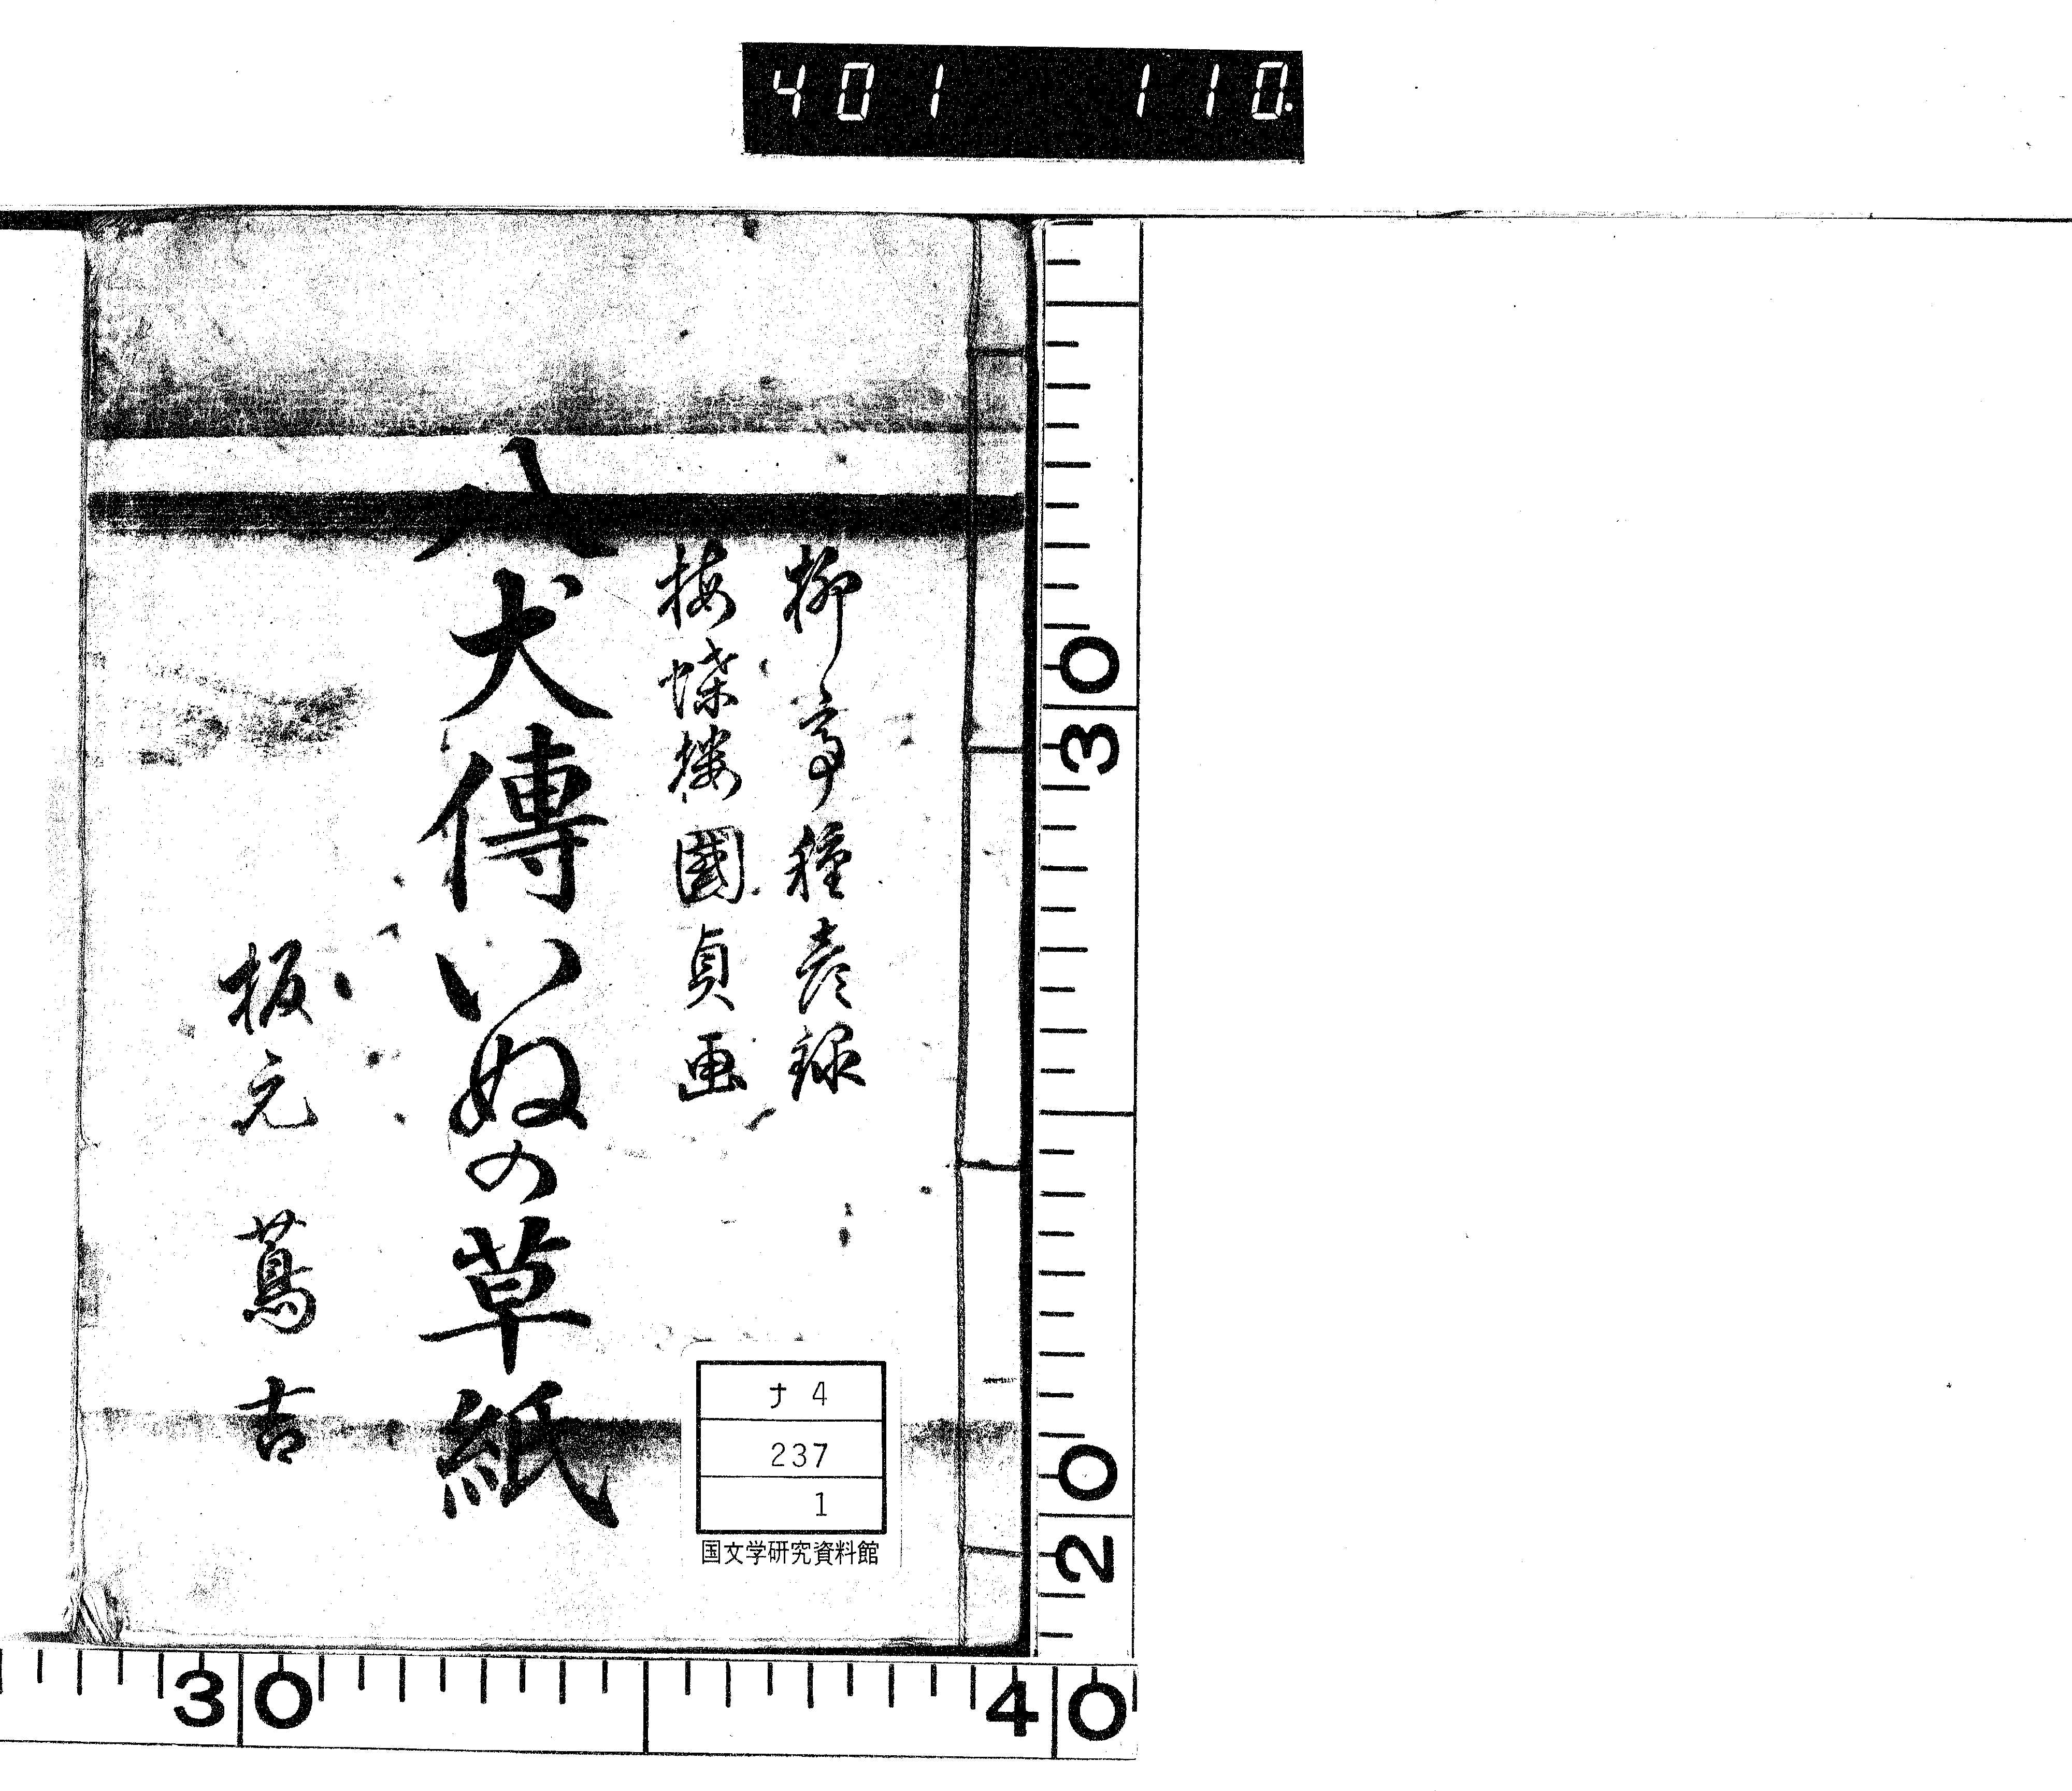 401 110.
柳亭種彦録
梅蝶楼國貞画
八犬傳いぬの草紙
板元 蔦吉
ナ 4
237
1
国文学研究資料館
30
20
30
40